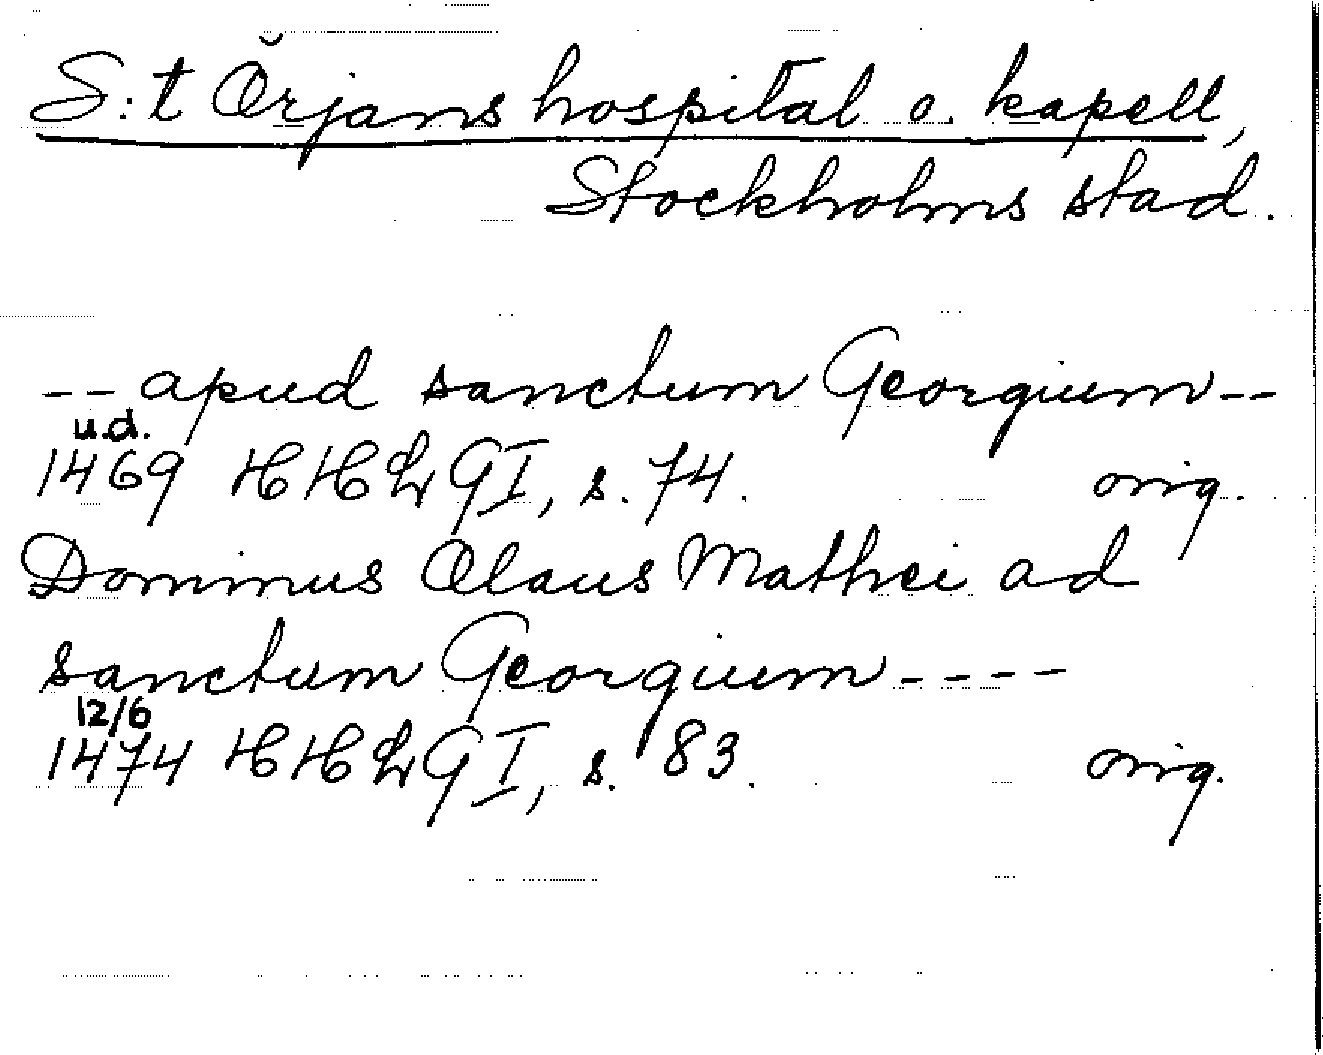 S:t Örjans hospital o. kapell,
Stockholms stad.
-- apud sanctum Georgium --
u.d.
1469 HHLG I, s. 74. orig.
Dominus Olaus Mathei ad
sanctum Georgium ----
12/6
1474 HHLG I, s. 83. orig.